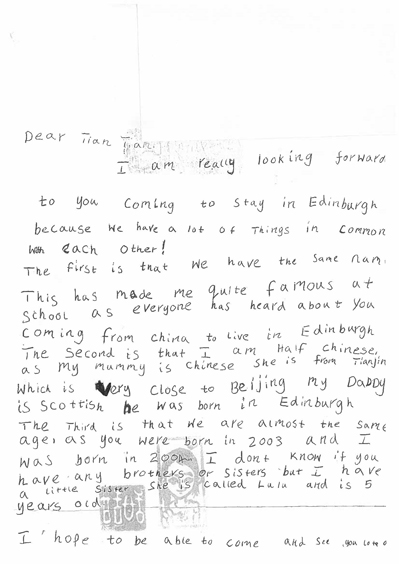 Dear Tian Tian,
I am really looking forward
to you coming to stay in Edinburgh
because we have a lot of Things in common
with each other!
The first is that we have the same nam
This has made me quite famous at
School as everyone has heard about you
Coming from china to live in Edinburgh
The Second is that I am Half Chinese,
as My mummy is chinese she is from Tianjin
Which is Very close to Beijing my DaDDy
is Scottish he was born in Edinburgh
The Third is that we are almost the same
age, as you were born in 2003 and I
was born in I dont know if you
have any brothers or Sisters but I have
a little Sister She is called Lulu and is 5
years old
I hope to be able to come and see you